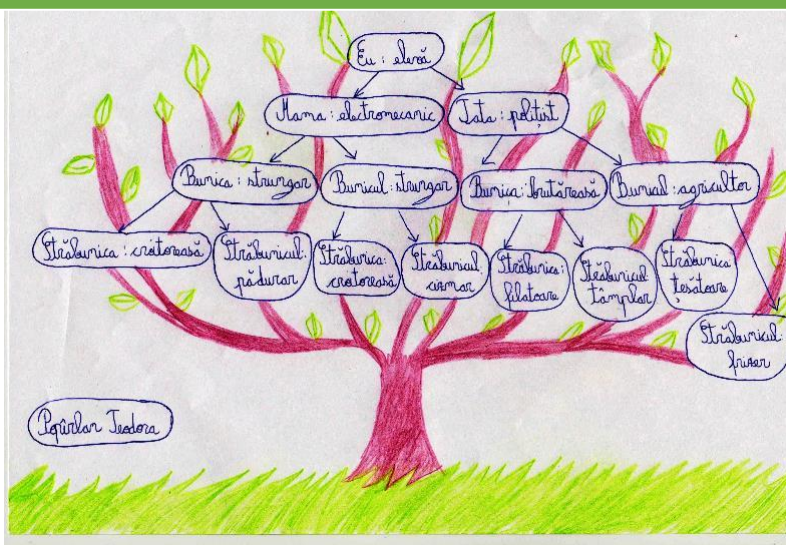 Eu : elevă
Mama : electromecanic
Tata : polițist
Bunica : strungar
Bunicul : strungar
Bunica : brutăreasă
Bunicul : agricultor
Străbunica : croitoreasă
Străbunicul :
pădurar
Străbunica :
croitoreasă
Străbunicul :
cizmar
Străbunica :
filatoare
Străbunicul
tâmplar
Străbunica
țesătoare
Străbunicul :
frizer
Popîrlan Teodora